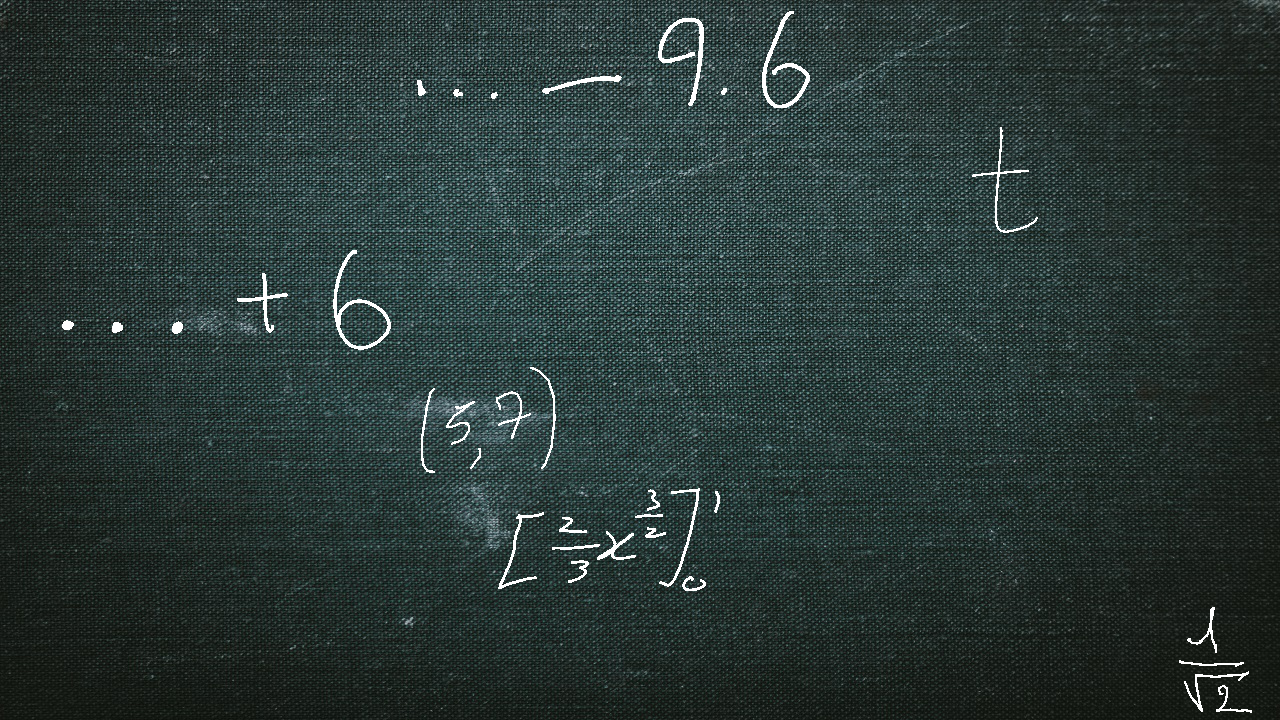 ... - 9.6
t
... + 6
(5,7)
[\frac{2}{3}x^{\frac{3}{2}}]_0^1
\frac{1}{\sqrt{2}}